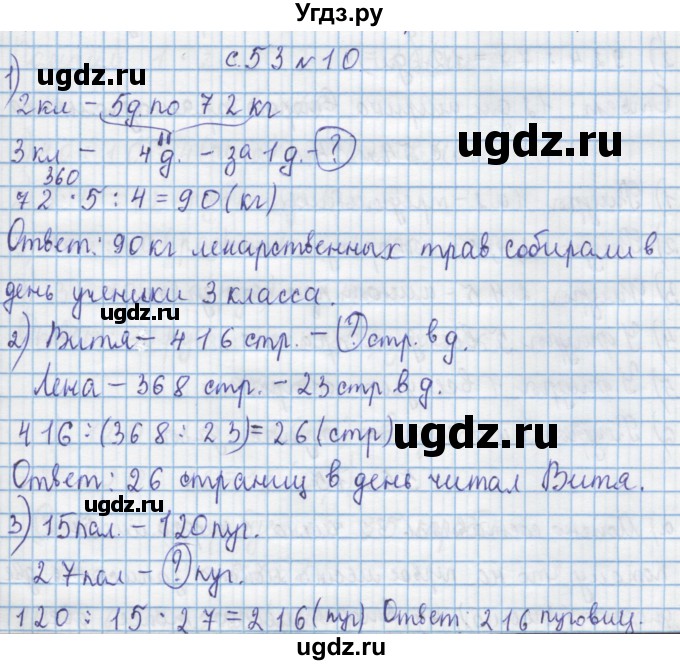 Угдз.ру
с.53 №10
1)
ugdz.ru
2кл – 5д. по 72кг
3кл – 4д. – за 1д. – ?
360
72 · 5 : 4 = 90 (кг)
Ответ: 90кг лекарственных трав собирали в
день ученики 3 класса.
ugdz.ru
2) Витя – 416 стр. – ? стр. в д.
Лена – 368 стр. – 23 стр в д.
416 : (368 : 23) = 26 (стр)
ugdz.ru
Ответ: 26 страниц в день читал Витя.
ugdz.ru
3) 15пал. – 120пуг.
27пал – ? пуг.
120 : 15 · 27 = 216 (пуг) Ответ: 216 пуговиц.
ugdz.ru
ugdz.ru